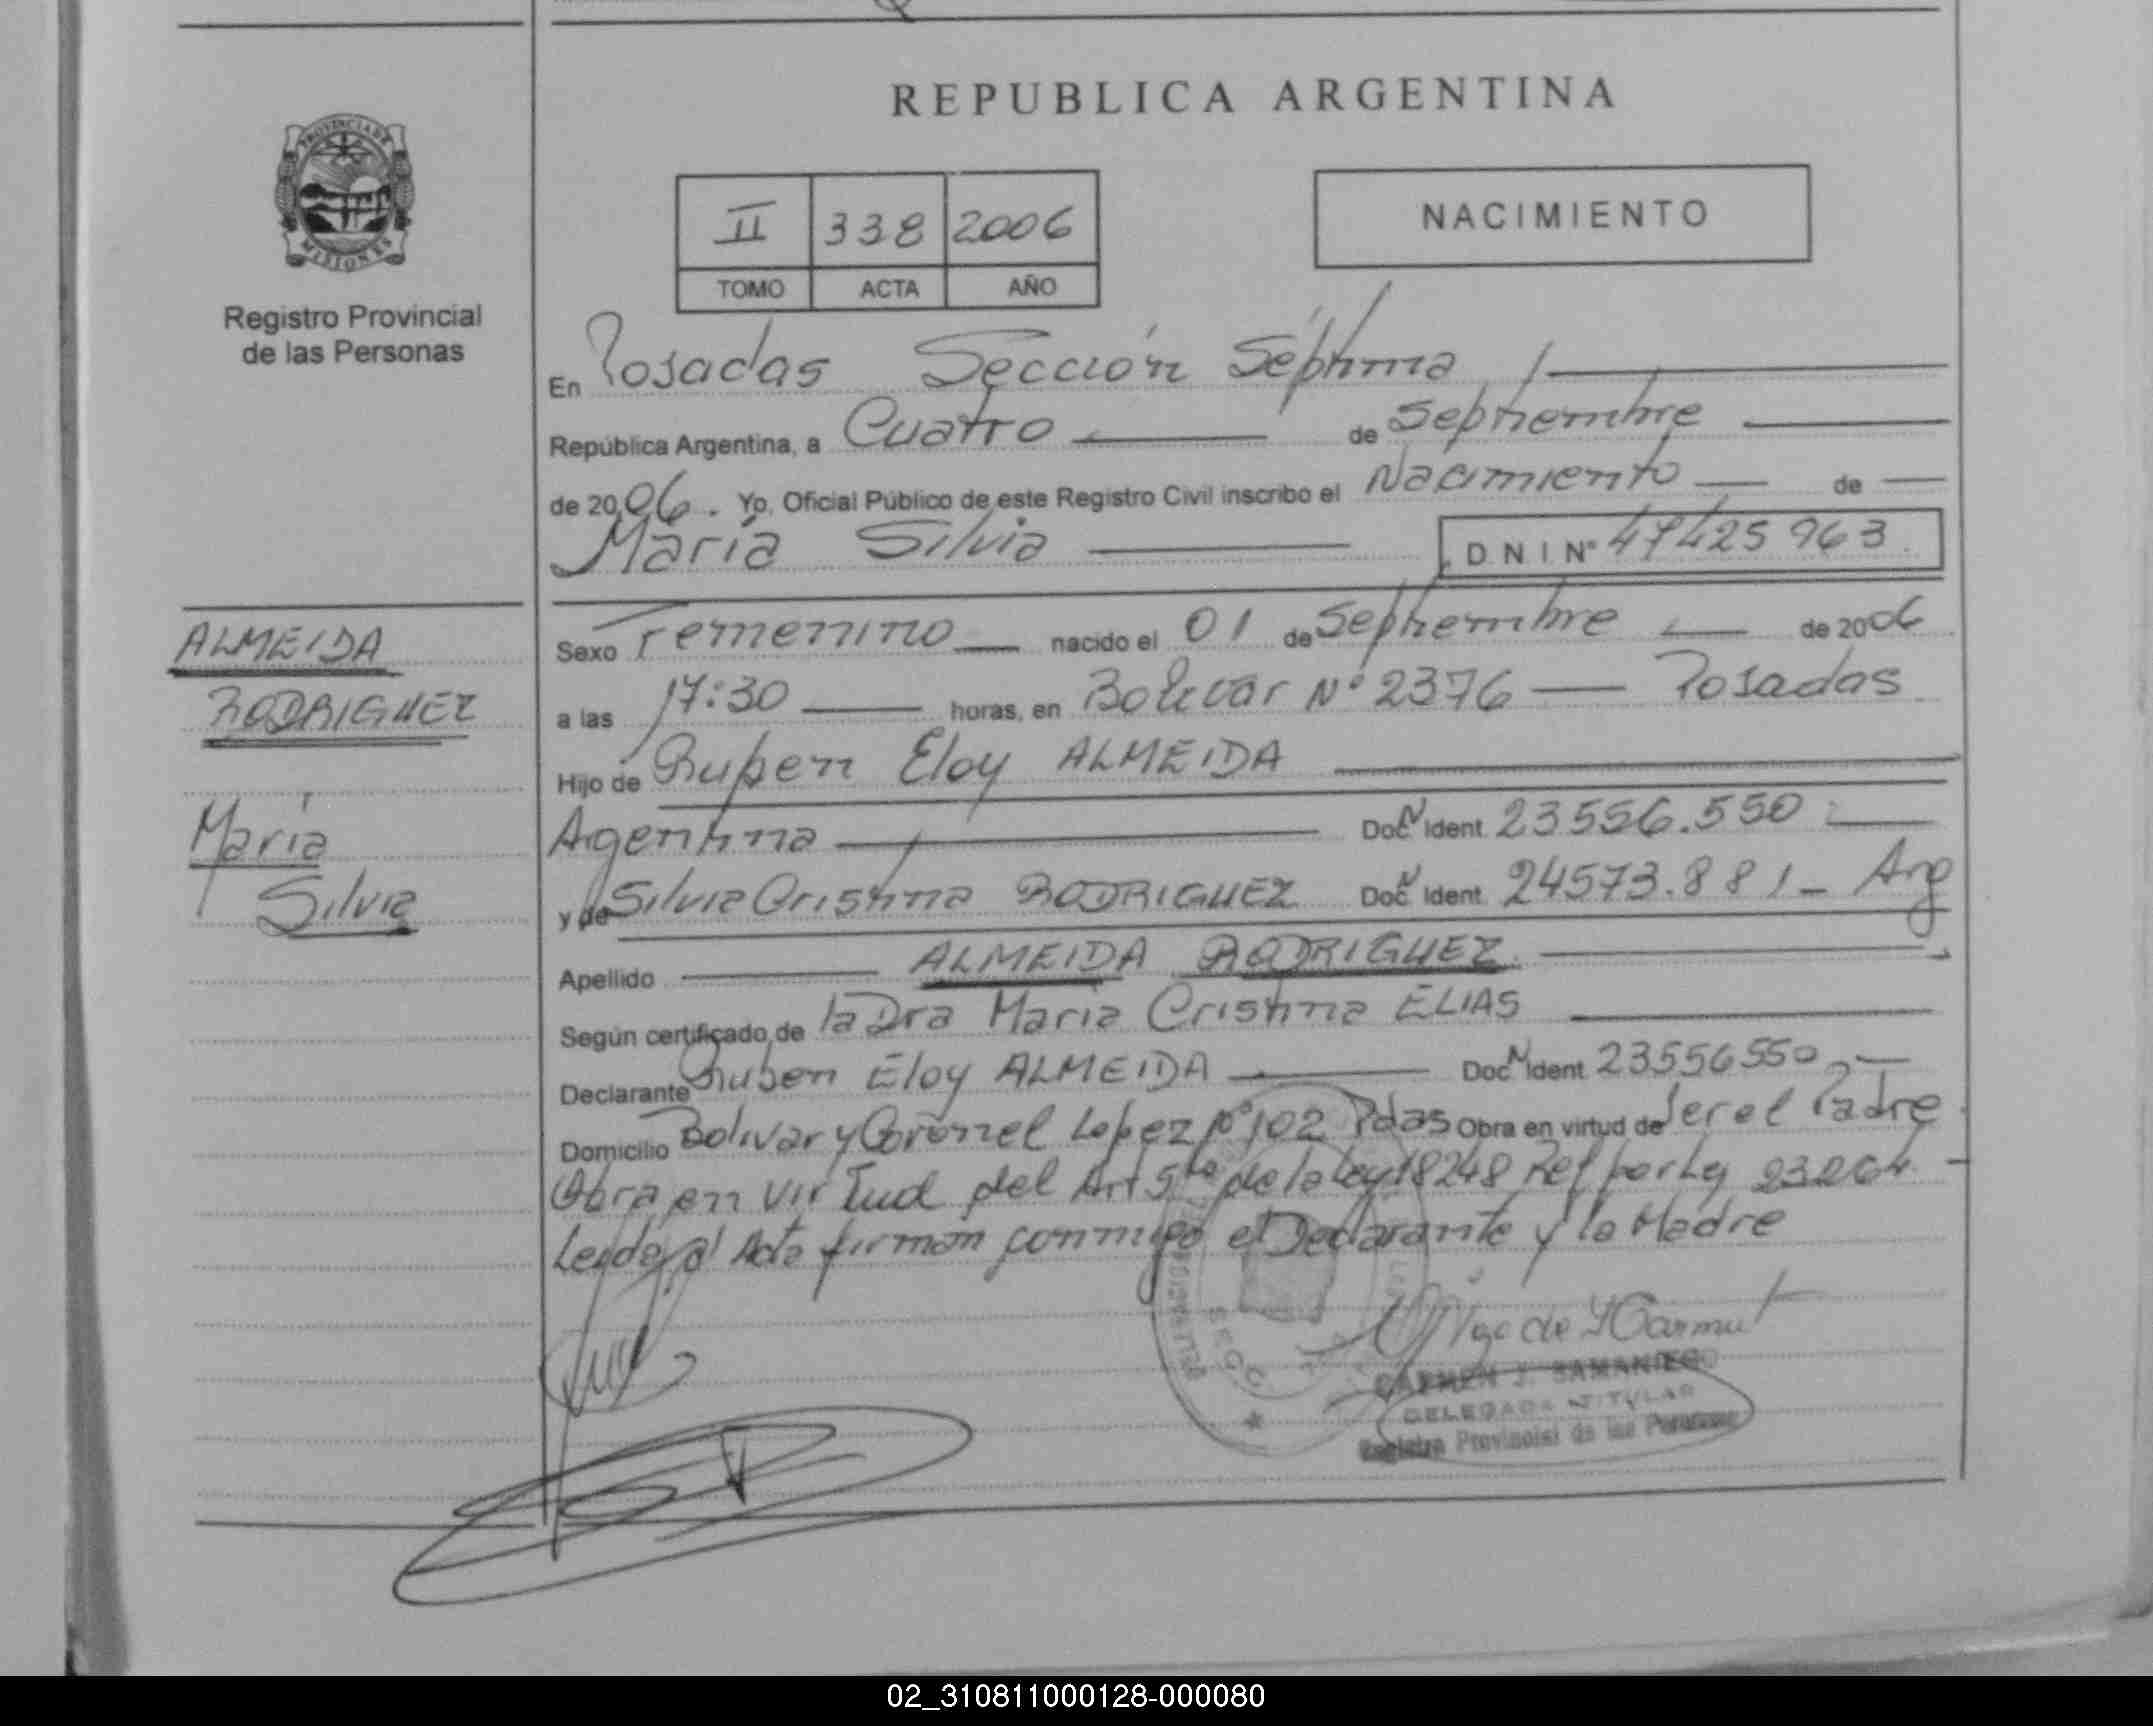 REPUBLICA ARGENTINA
PROVINCIA DE MISIONES
Registro Provincial
de las Personas
II 338 2006
TOMO ACTA AÑO
NACIMIENTO
En Posadas Sección Séptima
República Argentina, a Cuatro de Septiembre
de 2006. Yo, Oficial Público de este Registro Civil inscribo el Nacimiento de
María Silvia D N I Nº 47425963
ALMEIDA
RODRIGUEZ
María
Silvia
Sexo Femenino nacido el 01 de Septiembre de 2006
a las 17:30 horas, en Bolivar Nº 2376 Posadas
Hijo de Ruben Eloy ALMEIDA
Argentina Doc N Ident. 23556.550
y de Silvia Cristina RODRIGUEZ Doc N Ident. 24573.881 - Arg
Apellido ALMEIDA RODRIGUEZ
Según certificado de la Dra Maria Cristina ELIAS
Declarante Ruben Eloy ALMEIDA Doc N Ident. 23556550
Domicilio Bolivar y Coronel Lopez Nº 102 Pdas Obra en virtud de Ser el Padre
Obra en virtud del Art 5to de la ley 18248 Ref por Ley 23264
Leida el Acta firman conmigo el Declarante y la Madre
CARMEN J. SAMANIEGO
DELEGADA TITULAR
Registro Provincial de las Personas
02_310811000128-000080